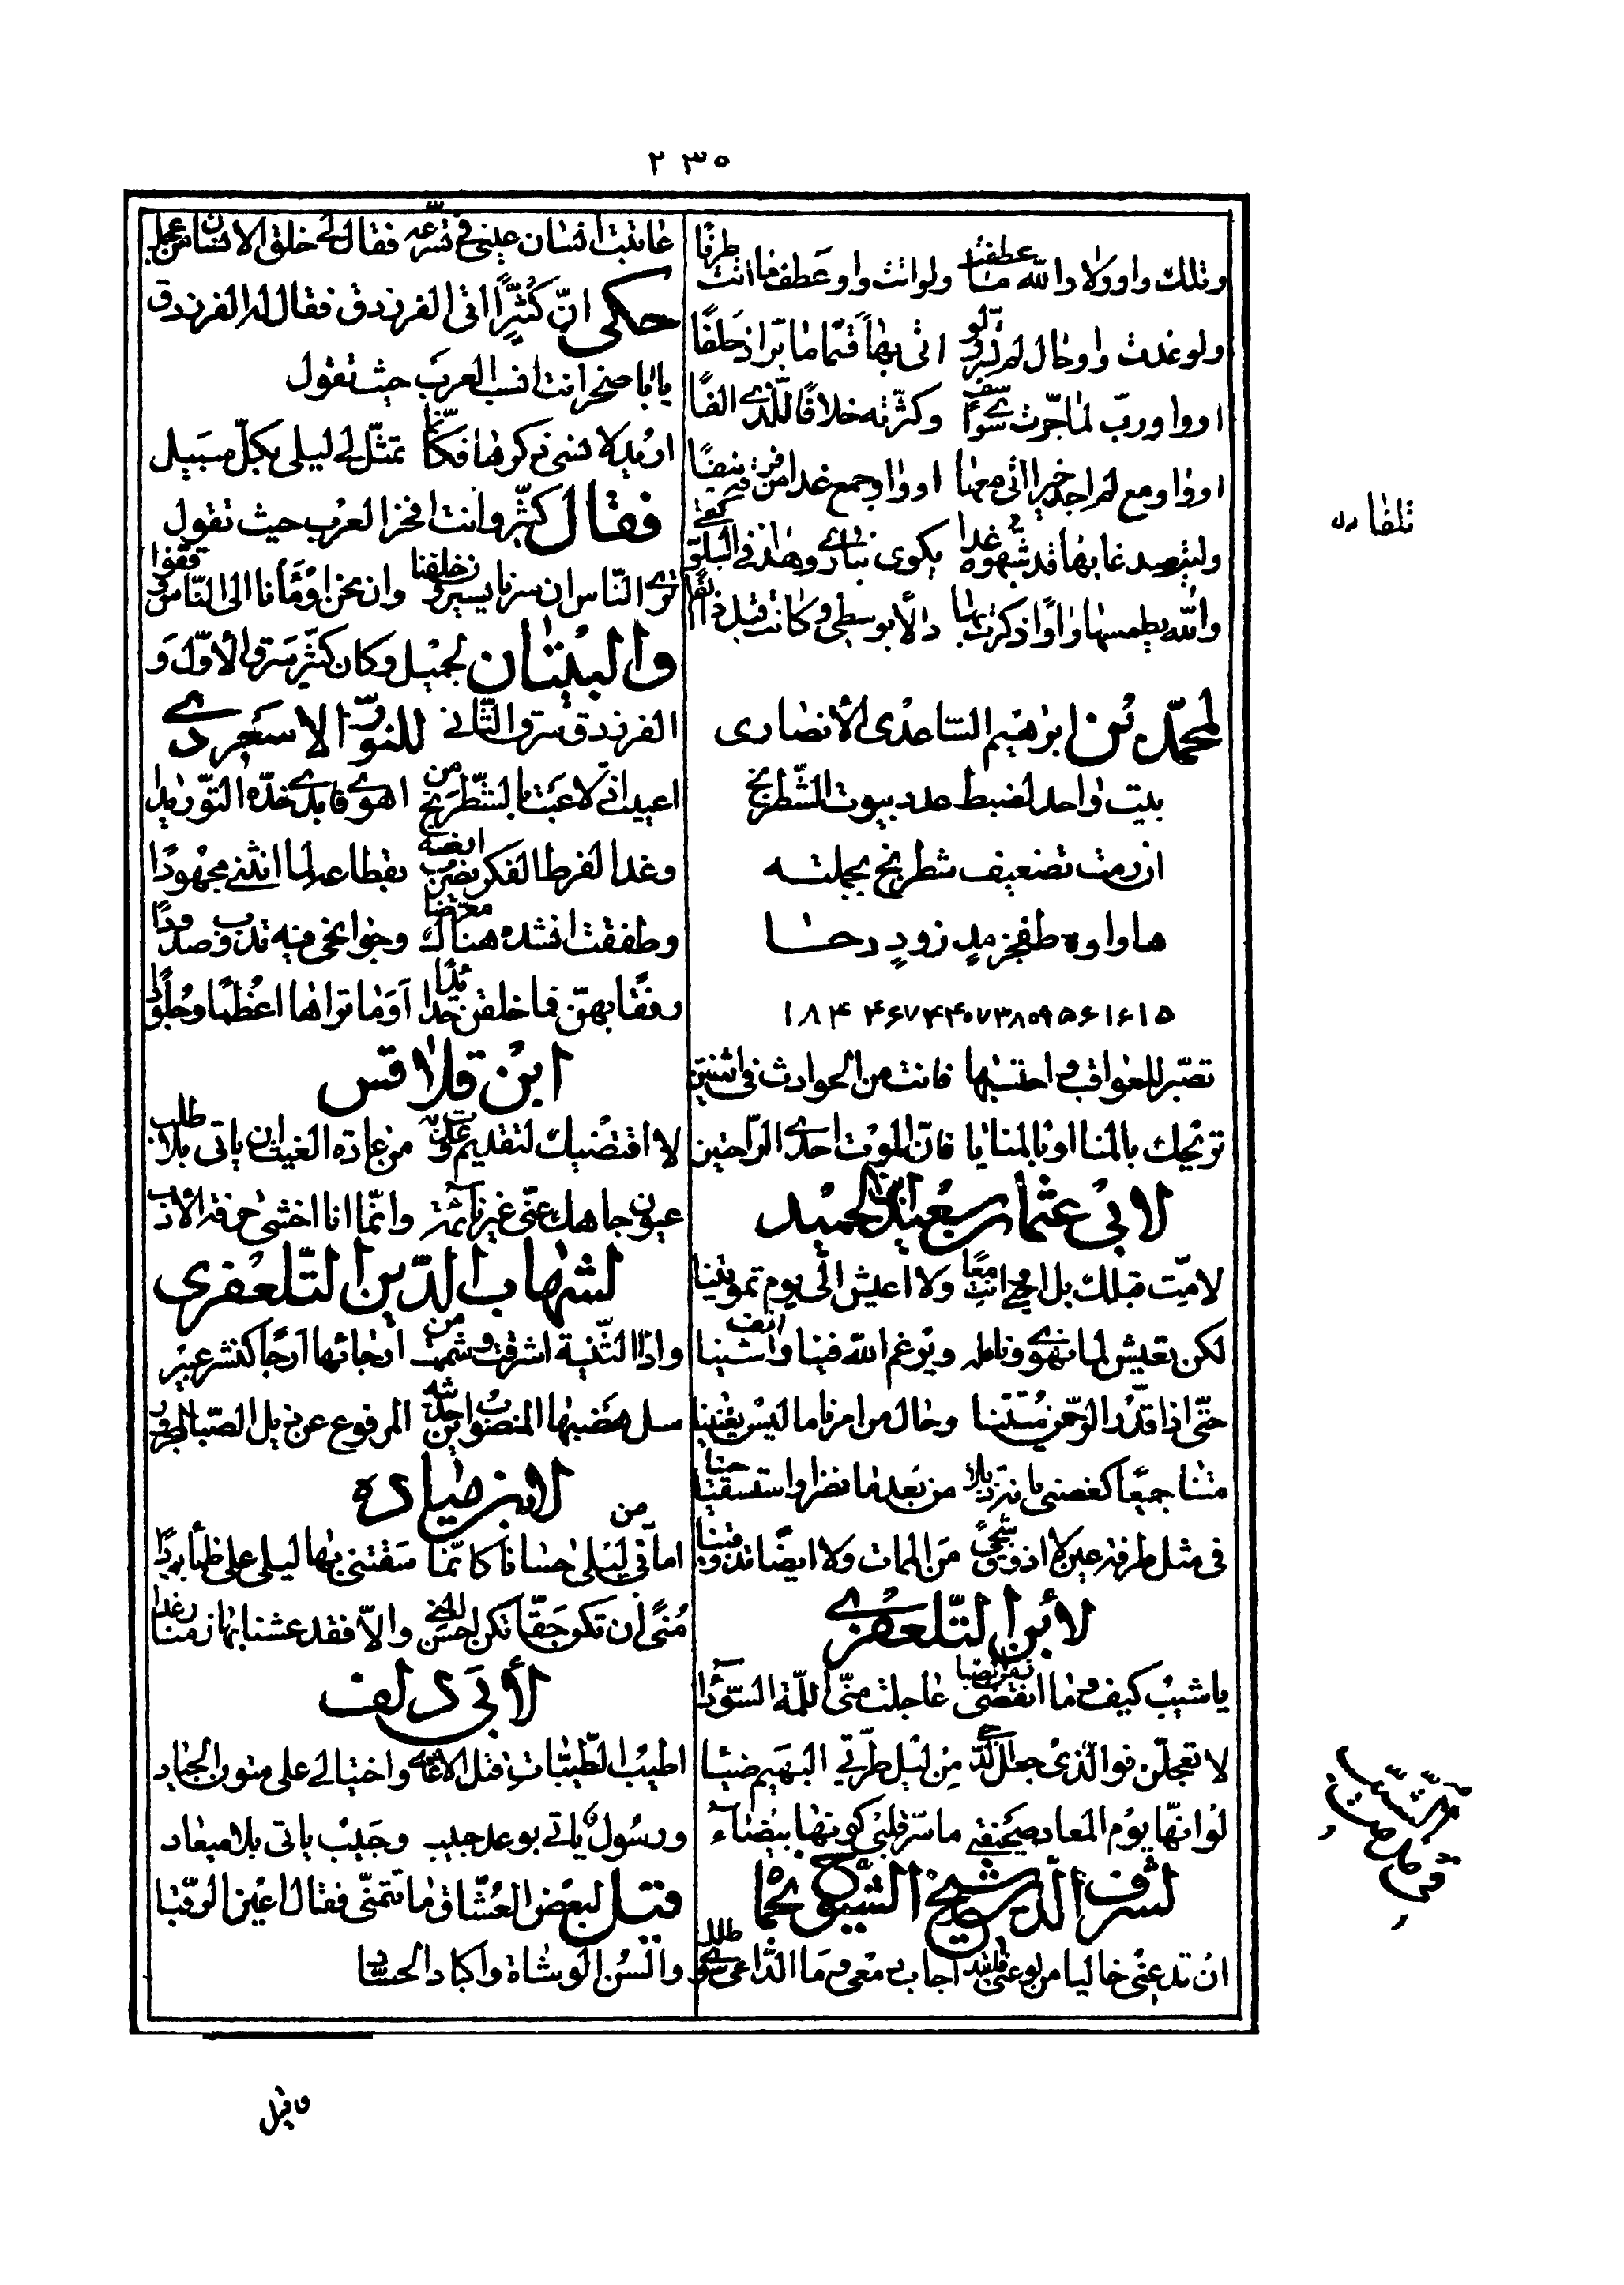 ٢٣٥
وتلك واو ولا دالله ما عطفت ولو اتت واو عطف ما اتت طرفا
ولو غدت واو حال لم تسر ولو اتى بها قسما ما بر اذ حلفا
او واو رب لما جرت سوى سف وكثرته خلافا للذي الفا
او واو مع لم اجد خيرا اتى معها او واو جمع غدا من فرقة
وليت صدغا بها قد شبهوه غدا يكوى بنار وهذا في البلو كفى
والله يطمسها واوا ذكرت بها دالا بوسطى وكانت قبل ذا
تلفا
لمحمد بن ابراهيم الساعدى الأنصارى
بيت واحد لضبط عدد بيوت الشطرنج
ان رمت تضعيف شطرنج بجملته
هاواوه طفجز مد زود دحا
١٨۴۴۶٧۴۴٠٧٣٨٠٩۵۶١۶١۵
تصبر للعواقب واحتسبها فانت من الحوادث في اثنتين
تريحك بالمنا او بالمنايا فان الموت احدى الراحتين
لابى عثمان سعيد ابن الحميد
لا مت قبلك بل احيى وانت معا ولا اعيش الى يوم تموتينا
لكن نعيش لما نهوى ونامله ويرغم الله فينا انف واشينا
حتى اذا قدر الرحمن ميتتنا وحال من امرنا ما ليس يعنينا
متنا جميعا كغصنى بانة ذبلا من بعد ما نضرا واستسقيا حينا
في مثل طرفة عين لا اذوق شجى من الممات ولا ايضا تذوقينا
لأبن التلعفري
يا شيب كيف وما انقضى زمن الصبا عاجلت منى اللمة السودا
لا تعجلن فوالذى جعل الدجى من ليل طرتي البهيم ضيا
لو انها يوم المعاد صحيفتى ما سر قلبى كونها بيضاء
لشرف الدين شيخ الشيوخ بحما
ان تدعنى خاليا من لوعتى فلقد اجاب دمعى وما الداعى سوى طلل
عاتبت انسان عينى في تسرعه فقال لي خلق الانسان من عجل
حكى ان كثيرا اتى الفرزدق فقال له الفرزدق
يابا صخر انت انسب العرب حيث تقول
اريد لا نسى ذكرها فكانما تمثل لي ليلى بكل سبيل
فقال كثير وانت افخر العرب حيث تقول
ترى الناس ان سرنا يسيرون خلفنا وان نحن اومأنا الى الناس وقفوا
والبيتان لجميل وكان كثير سرق الأول و
الفرزدق سرق الثاني للنور الاسعردي
اعيداني لاعبت بالشطرنج من اهوى فابدى خده التوريدا
وغدا لفرط الفكر يضرب ارضه بقطاعه لما انثنى مجهودا
وطفقت انشده هناك معرضا وجوانحى منه تذوب صدودا
رفقا بهن فما خلقن حديدا اوما تراها اعظما وجلودا
ابن قلاقس
لا اقتضيك لتقديم وعدت به من عادة الغيث ان ياتى بلا طلب
عيون جاهك عنى غير نائمة وانما انا اخشى حرفة الأدب
لشهاب الدين التلعفرى
واذا الثنية اشرقت وشممت من ارجائها ارجا كنشر عبير
سل هضبها المنصوب اين حديثه المرفوع عن ذيل الصبا المجرور
لابن ميادة
امانى من ليلى حسانا كانما سقتنى بها ليلى على ظمأ بردا
منى ان تكن حقا تكن احسن المنى والا فقد عشنا بها زمنا رغدا
لأبى دلف
اطيب الطيبات قتل الاعادي واختيالي على متون الجياد
ورسول ياتي بوعد حبيب وحبيب ياتى بلا ميعاد
قيل لبعض العشاق ما تتمنى فقال اعين الرقبا
والسن الوشاة واكباد الحساد